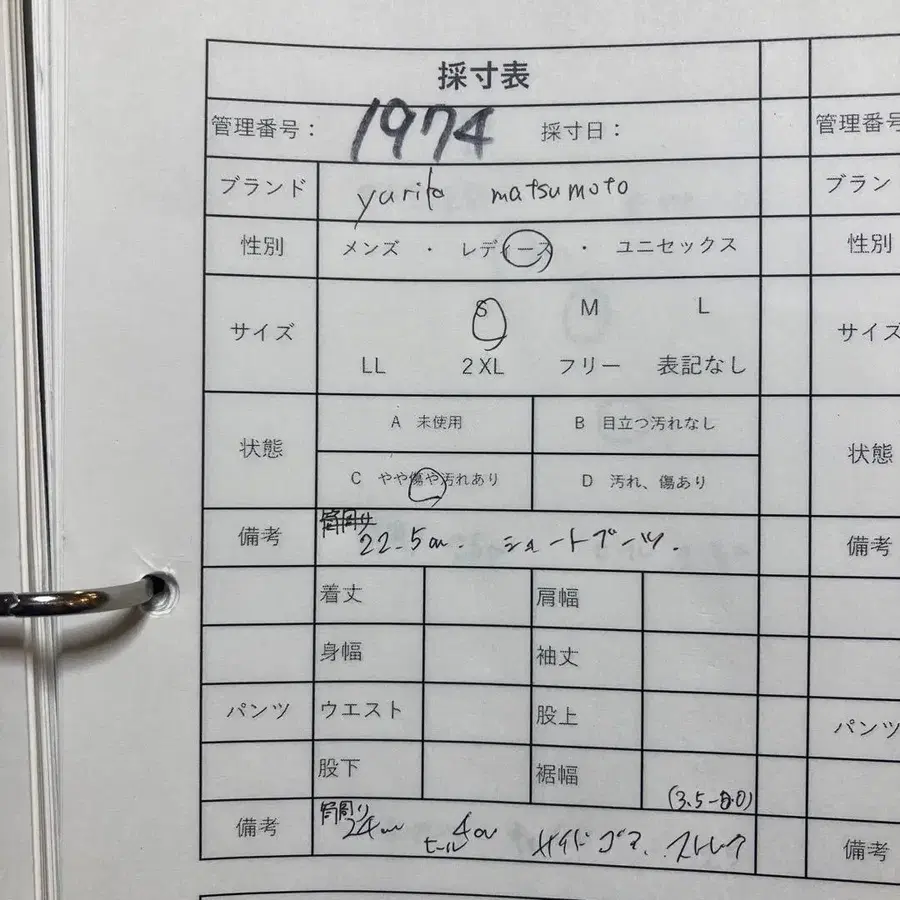 採寸表
管理番号： 1974 採寸日： 管理番号
ブランド yurito matsumoto ブラン
性別 メンズ ・ レディース ・ ユニセックス 性別
S M L
サイズ サイズ
LL 2XL フリー 表記なし
A 未使用 B 目立つ汚れなし
状態 状態
C やや傷や汚れあり D 汚れ、傷あり
筒周り
備考 22.5cm. ショートブーツ. 備考
着丈 肩幅
身幅 袖丈
パンツ ウエスト 股上 パンツ
股下 裾幅
筒周り
備考 24cm ヒール4cm サイドゴア. 備考